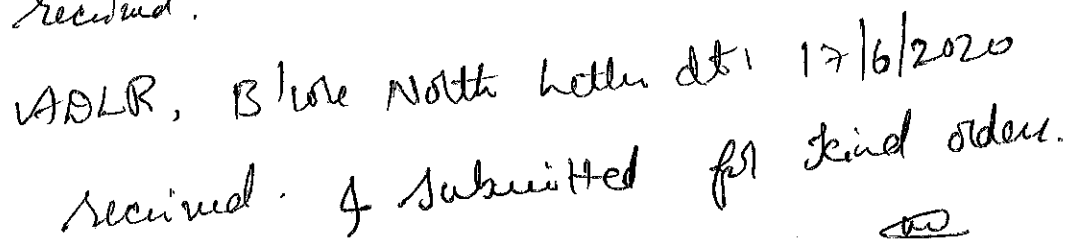 received.
ADLR, B'lore North Letter dt: 17/6/2020
received. & submitted for kind orders.